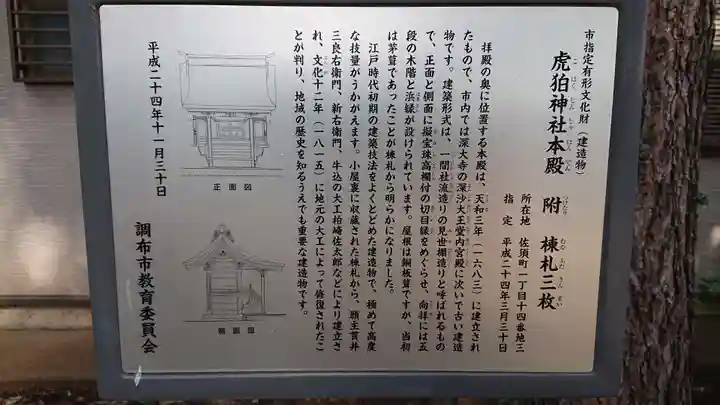 市指定有形文化財(建造物)
虎狛神社本殿 附 棟札三枚
こはくじんじゃほんでん つけたり むなふださんまい
所在地 佐須町一丁目十四番地三
指定 平成二十四年三月三十日
拝殿の奥に位置する本殿は、天和三年(一六八三)に建立され
たもので、市内では深大寺の深沙大王堂内宮殿に次いで古い建造
物です。建築形式は、一間社流造りの見世棚造りと呼ばれるもの
で、正面と側面に擬宝珠高欄付の切目縁をめぐらせ、向拝には五
段の木階と浜縁が設けられています。屋根は銅板葺ですが、当初
は茅葺であったことが棟札から明らかになりました。
江戸時代初期の建築技法をよくとどめた建造物で、極めて高度
な技量がうかがえます。小屋裏に収蔵された棟札から、願主貫井
三良右衛門、新右衛門、牛込の大工柏崎佐太郎などにより建立さ
れ、文化十二年(一八一五)に地元の大工によって修復されたこ
とが判り、地域の歴史を知るうえでも重要な建造物です。
正面図
側面図
平成二十四年十一月三十日
調布市教育委員会